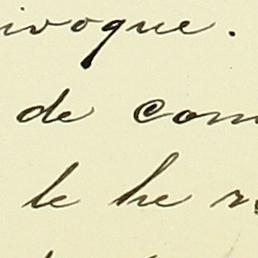 ivoque.
de com
le he r